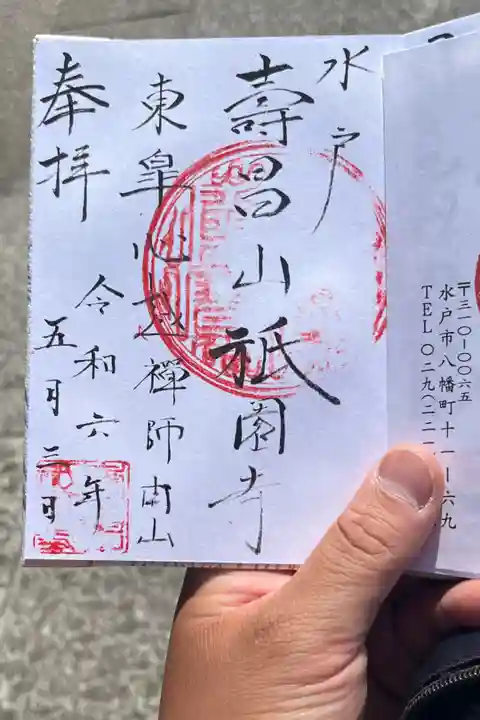 〒三一〇ー〇〇六五
水戸市八幡町十一ー六九
TEL〇二九(二二一
水戸
壽昌山祇園寺
東皐心越禪師開山
奉拝
令和六年
五月三日